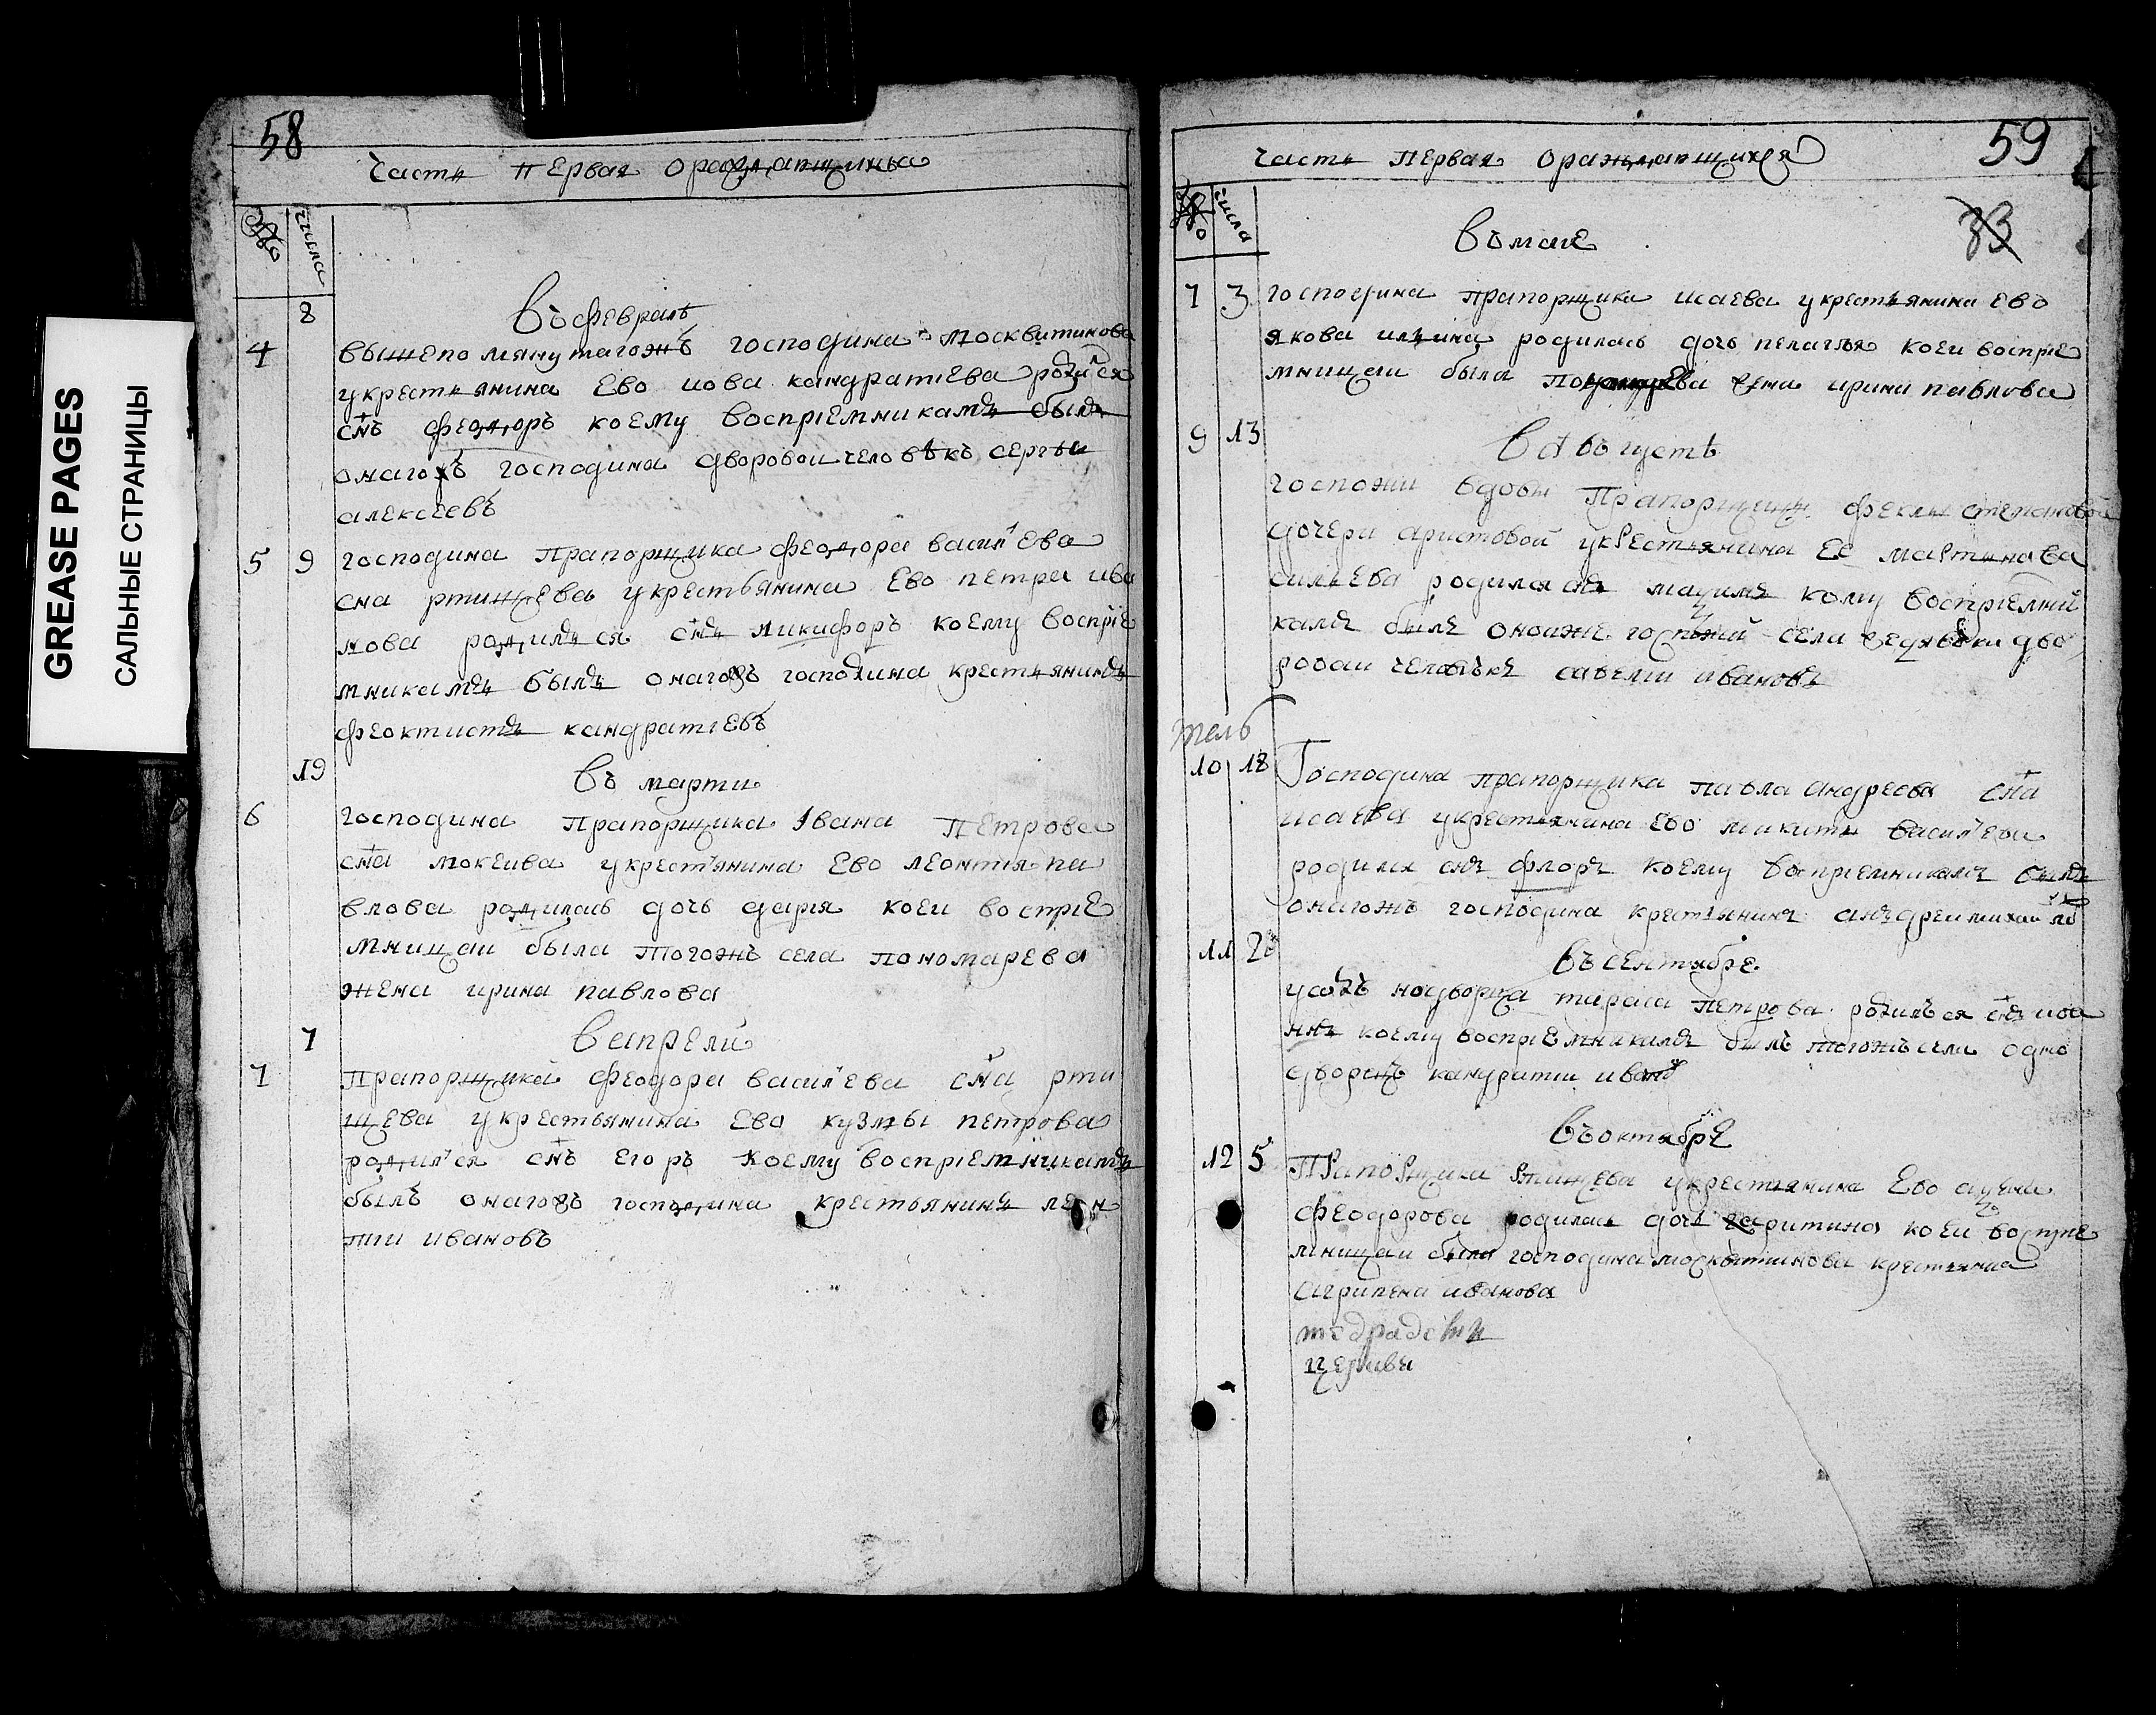 GREASE PAGES
САЛЬНЫЕ СТРАНИЦЫ
58
часть первая о раждающихся
числа
8
Въ феврале
4 вышепомянутагожъ господина москвитинова
укрестьянина ево иова кандратiева родился
снъ феодоръ коему восприемникамъ былъ
онагожъ господина дворовои человѣкъ сергѣи
алексеевъ
5 9 господина прапорщика феодора васильева
сна ртищева укрестьянина ево петра ива
нова родилъся снъ никифоръ коему воспрiе
мникамъ былъ онагожъ господина крестьянинъ
феоктистъ кандратiевъ
19 Въ марти
6 господина прапорщика Iвана петрова
сна мокеива укрестьянина ево леонтiя па
влова родилась дочь дарiя коеи воспрiе
мницаи была тогожъ села пономарева
жена ирина павлова
7 Вапрели
7 прапорщика феодора васильева сна рти
щева укрестьянина ево кузмы петрова
родился снъ егоръ коему воспрiемникамъ
былъ онагожъ господина крестьянинъ леон
тии ивановъ
59
часть первая о раждающихся
числа
33
Въ мае
7 3 господина прапорщика исаева укрестьянина ево
якова ильина родилась дочь пелагѣя коеи воспрiе
мницаи была жена ирина павлова
9 13 Вавъгустѣ
госпожи вдовы прапорщицы феклы степановой
дочери аристовой укрестьянина ее мартина ва
сильева родился снъ кому воспрiемни
камъ былъ оноиже госпожи села дво
роваи человѣкъ савелiи ивановъ
тель
10 18 Господина прапорщика павла андреева сна
исаева укрестьянина ево никиты васильева
родился снъ флоръ коему воспрiемникамъ былъ
онагожъ господина крестьянинъ анъдреи михаило
11 2 Въ сентябре
петрова родилъся снъ иоа
ннъ коему воспрiемникамъ былъ тогожъ села одно
дворецъ кандратии ивановъ
Въ октябрѣ
12 5 прапорщика ртищева укрестьянина ево
феодорова родилась дочь харитина коеи воспрiе
мницаи была господина москвитинова крестьянка
агрипена иванова
церкви